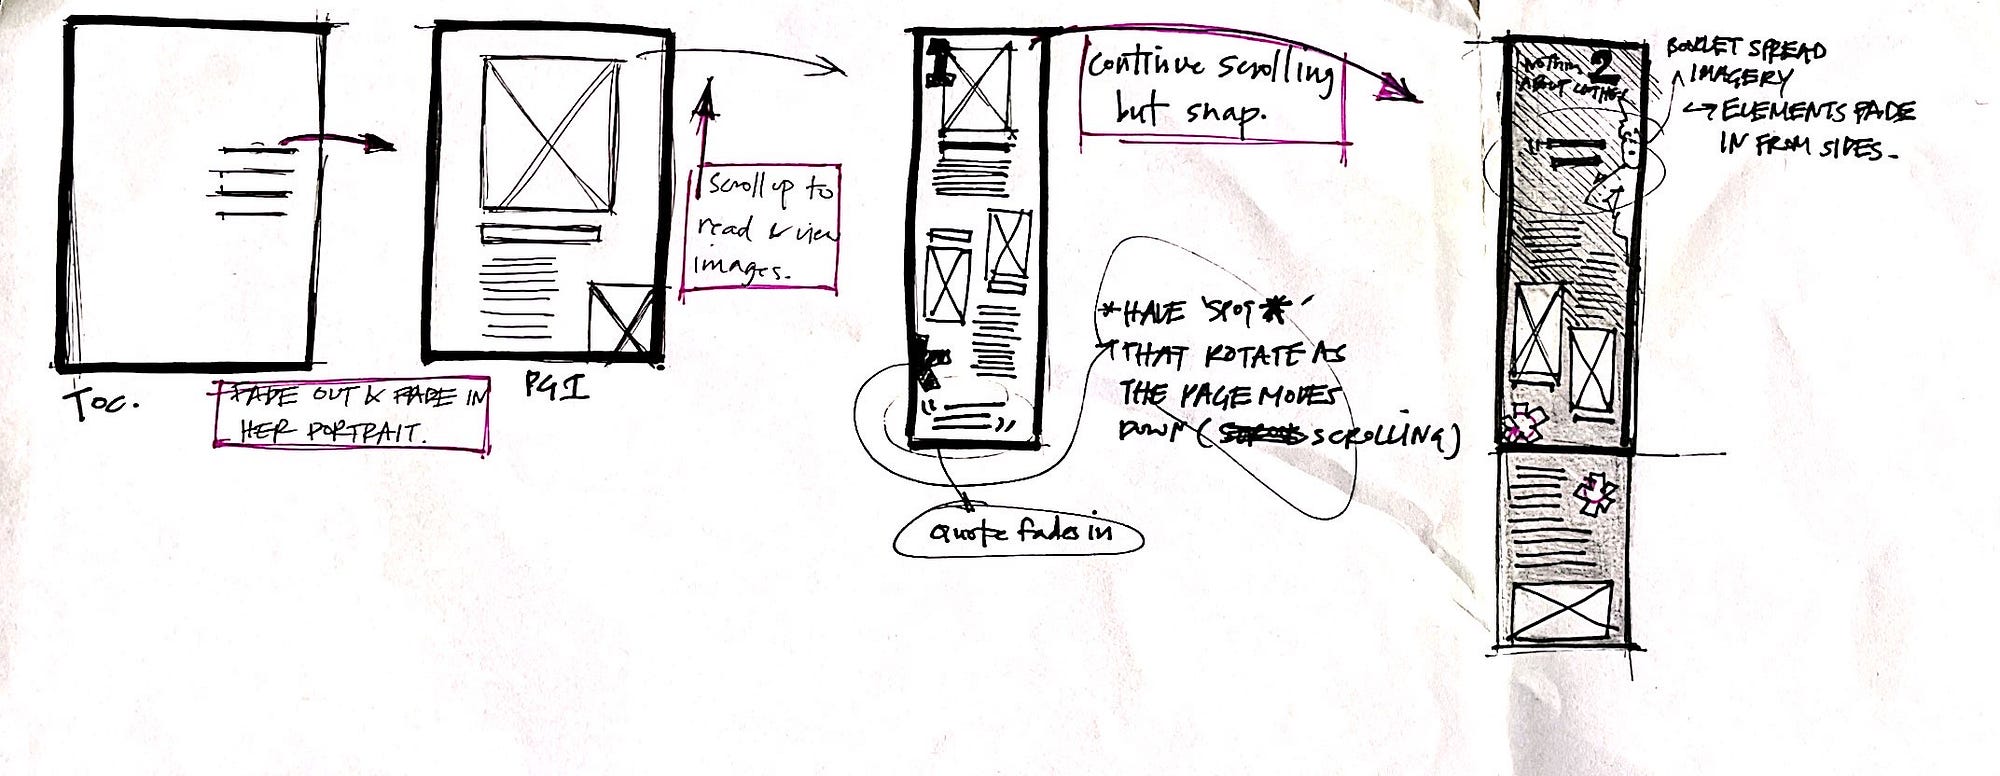 TOC.
FADE OUT & FADE IN
HER PORTRAIT.
PG I
scroll up to
read & view
images.
1
continue scrolling
but snap.
*HAVE 'SPOT *'
THAT ROTATE AS
THE PAGE MOVES
DOWN ( SCROLLING)
"
"
Quote fades in
2
NOTHING
ABOUT
"
BOOKLET SPREAD
IMAGERY
↳ ELEMENTS FADE
IN FROM SIDES.